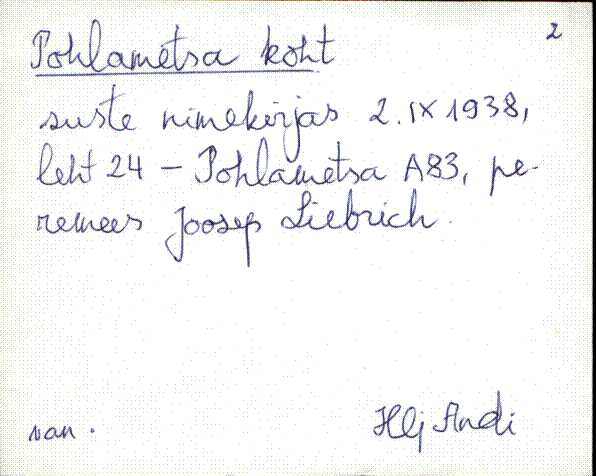 2
Pohlametsa koht
suste nimekirjas 2. IX 1938,
leht 24 - Pohlametsa A83, pe-
remees Joosep Liebrich.
van.
Hlj Andi